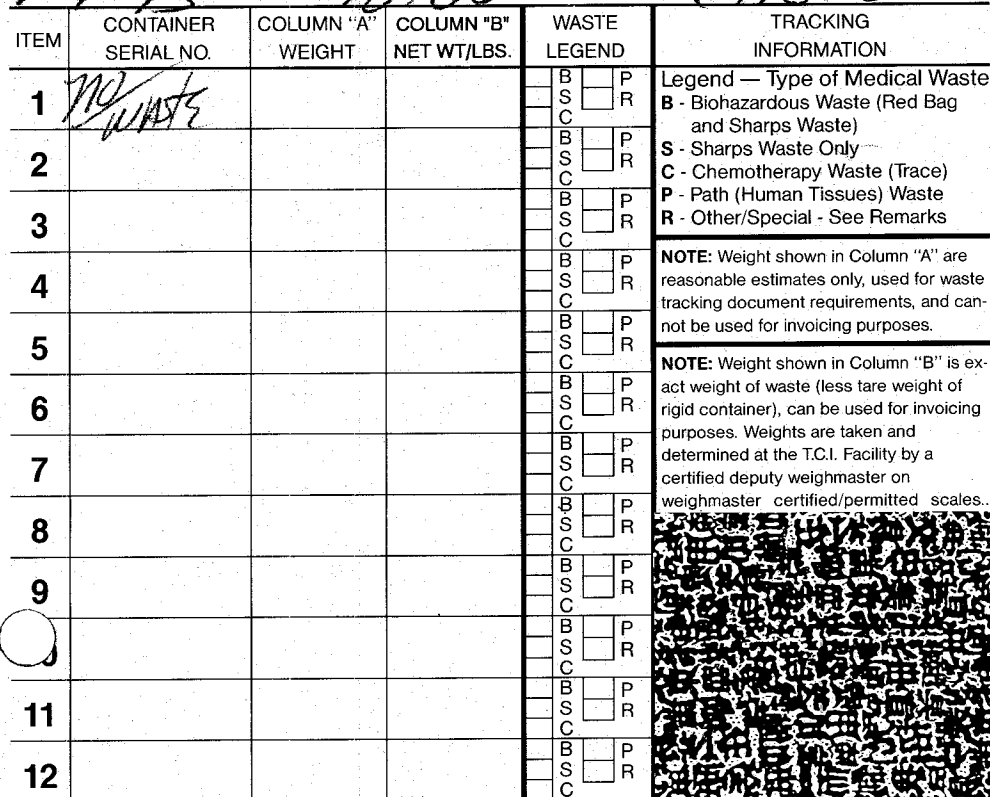 ITEM
CONTAINER
SERIAL NO.
COLUMN "A"
WEIGHT
COLUMN "B"
NET WT/LBS.
WASTE
LEGEND
TRACKING
INFORMATION
1
NO
WASTE
B P
S R
C
2
B P
S R
C
3
B P
S R
C
4
B P
S R
C
5
B P
S R
C
6
B P
S R
C
7
B P
S R
C
8
B P
S R
C
9
B P
S R
C
B P
S R
C
11
B P
S R
C
12
B P
S R
C
Legend — Type of Medical Waste
B - Biohazardous Waste (Red Bag
and Sharps Waste)
S - Sharps Waste Only
C - Chemotherapy Waste (Trace)
P - Path (Human Tissues) Waste
R - Other/Special - See Remarks
NOTE: Weight shown in Column "A" are
reasonable estimates only, used for waste
tracking document requirements, and can-
not be used for invoicing purposes.
NOTE: Weight shown in Column "B" is ex-
act weight of waste (less tare weight of
rigid container), can be used for invoicing
purposes. Weights are taken and
determined at the T.C.I. Facility by a
certified deputy weighmaster on
weighmaster certified/permitted scales..